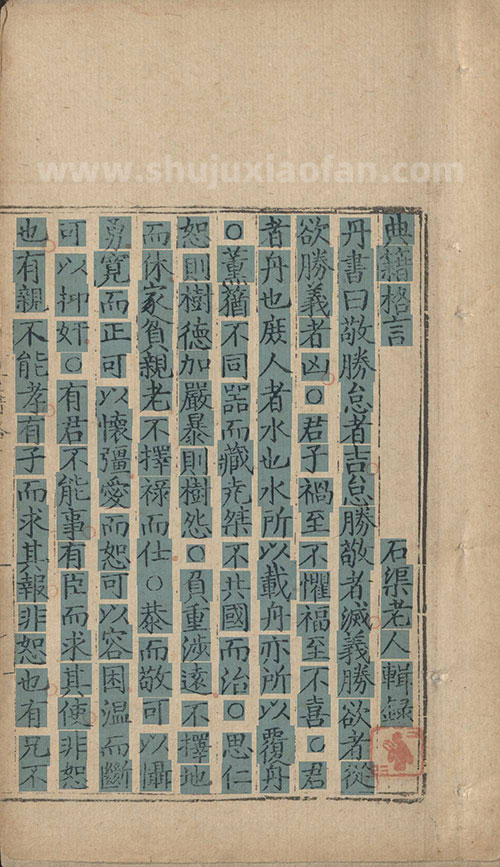 www.shujuxiaofan.com
典籍格言
石渠老人輯録
丹書曰敬勝怠者吉怠勝敬者滅義勝欲者從
欲勝義者凶○君子禍至不懼福至不喜○君
者舟也庻人者水也水所以載舟亦所以覆舟
○薰蕕不同器而藏尭桀不共國而治○思仁
恕則樹德加嚴暴則樹怨○負重涉遠不擇地
而休家貧親老不擇禄而仕○恭而敬可以懾
勇寛而正可以懷彊愛而恕可以容困溫而斷
可以抑奸○有君不能事有臣而求其使非恕
也有親不能孝有子而求其報非恕也有兄不